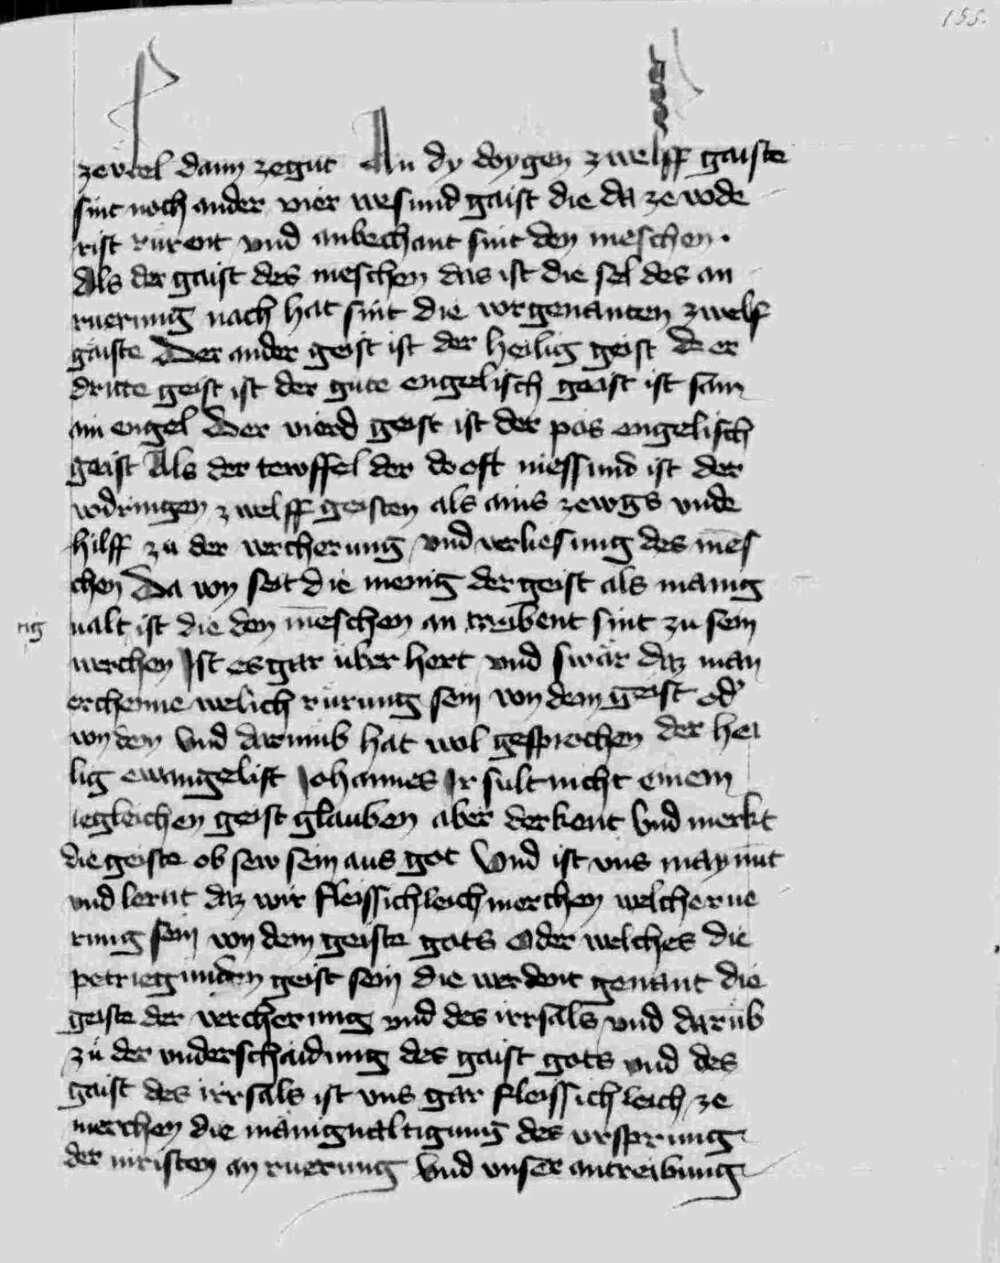 155.
zevrel dann zegut An dy doygen zwelff gaiste
sint noch ander vier wesund gaist die da ze vode
rist rürent vnd anbechant sint den meschen.
Als der gaist des meschen das ist die sel des an
ruerung nach hat sint die vorgenanten zwelf
gaiste Der ander geist ist der heilig geist der
dritte geist ist der gute engelisch geist ist sam
ain engel Der vierd geist ist der pös engelisch
geist Als der tewffel der do oft miessund ist der
vodringen zwelff geisten als ains zewgs vnde
hilff zu der vercherung vnd verliesung des mēs
chen Da von seit die menig der geist als manig
ualt ist die den mēschen an trëibent sint zu sein
werchen Ist es gar über hert vnd swär daz man
erchenne welich rürung sein von dem geist od'
von dem Vnd darumb hat wol gesprochen der hei
lig ewangelist Johannes Ir sult nicht einem
iegleichen geist glauben aber derkent Vnd merkt
die geiste ob sew sein aus got Vnd ist vns maynūt
vnd lernt daz wir fleissichleich merchen welche rue
rung sein von dem geiste gots Oder welches die
petriegunden geist sein die werdent genant die
geiste der vercherung vnd des irrsals vnd darūb
zü der vnderschaidung des gaist gots vnd des
gaist des irrsals ist vns gar fleissichleich ze
merchen die mānigualtigung des vrsprung
der inristen an ruerung Vnd vnser antreibung